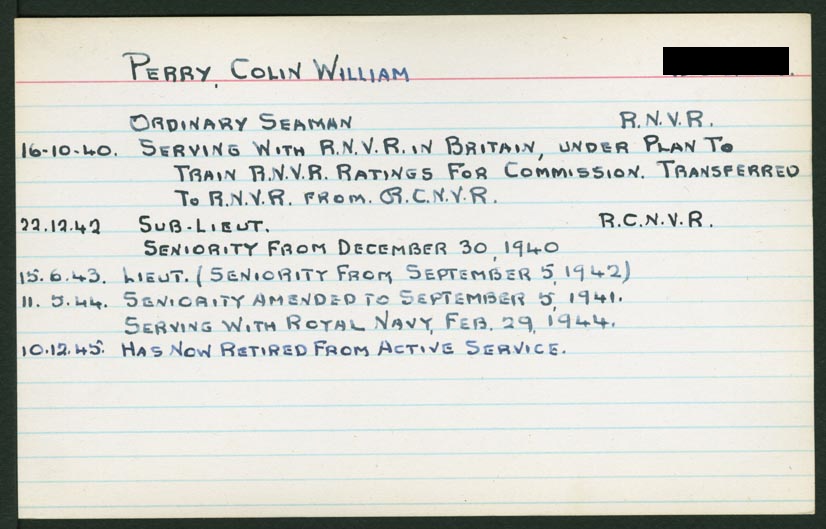 PERRY, COLIN WILLIAM
ORDINARY SEAMAN R.N.V.R.
16-10-40. SERVING WITH R.N.V.R. IN BRITAIN, UNDER PLAN TO
TRAIN R.N.V.R. RATINGS FOR COMMISSION. TRANSFERRED
TO R.N.V.R. FROM. R.C.N.V.R.
22.12.42 SUB-LIEUT. R.C.N.V.R.
SENIORITY FROM DECEMBER 30, 1940
15.6.43. LIEUT. (SENIORITY FROM SEPTEMBER 5, 1942)
11. 5.44. SENIORITY AMENDED TO SEPTEMBER 5, 1941.
SERVING WITH ROYAL NAVY, FEB. 29, 1944.
10.12.45. HAS NOW RETIRED FROM ACTIVE SERVICE.